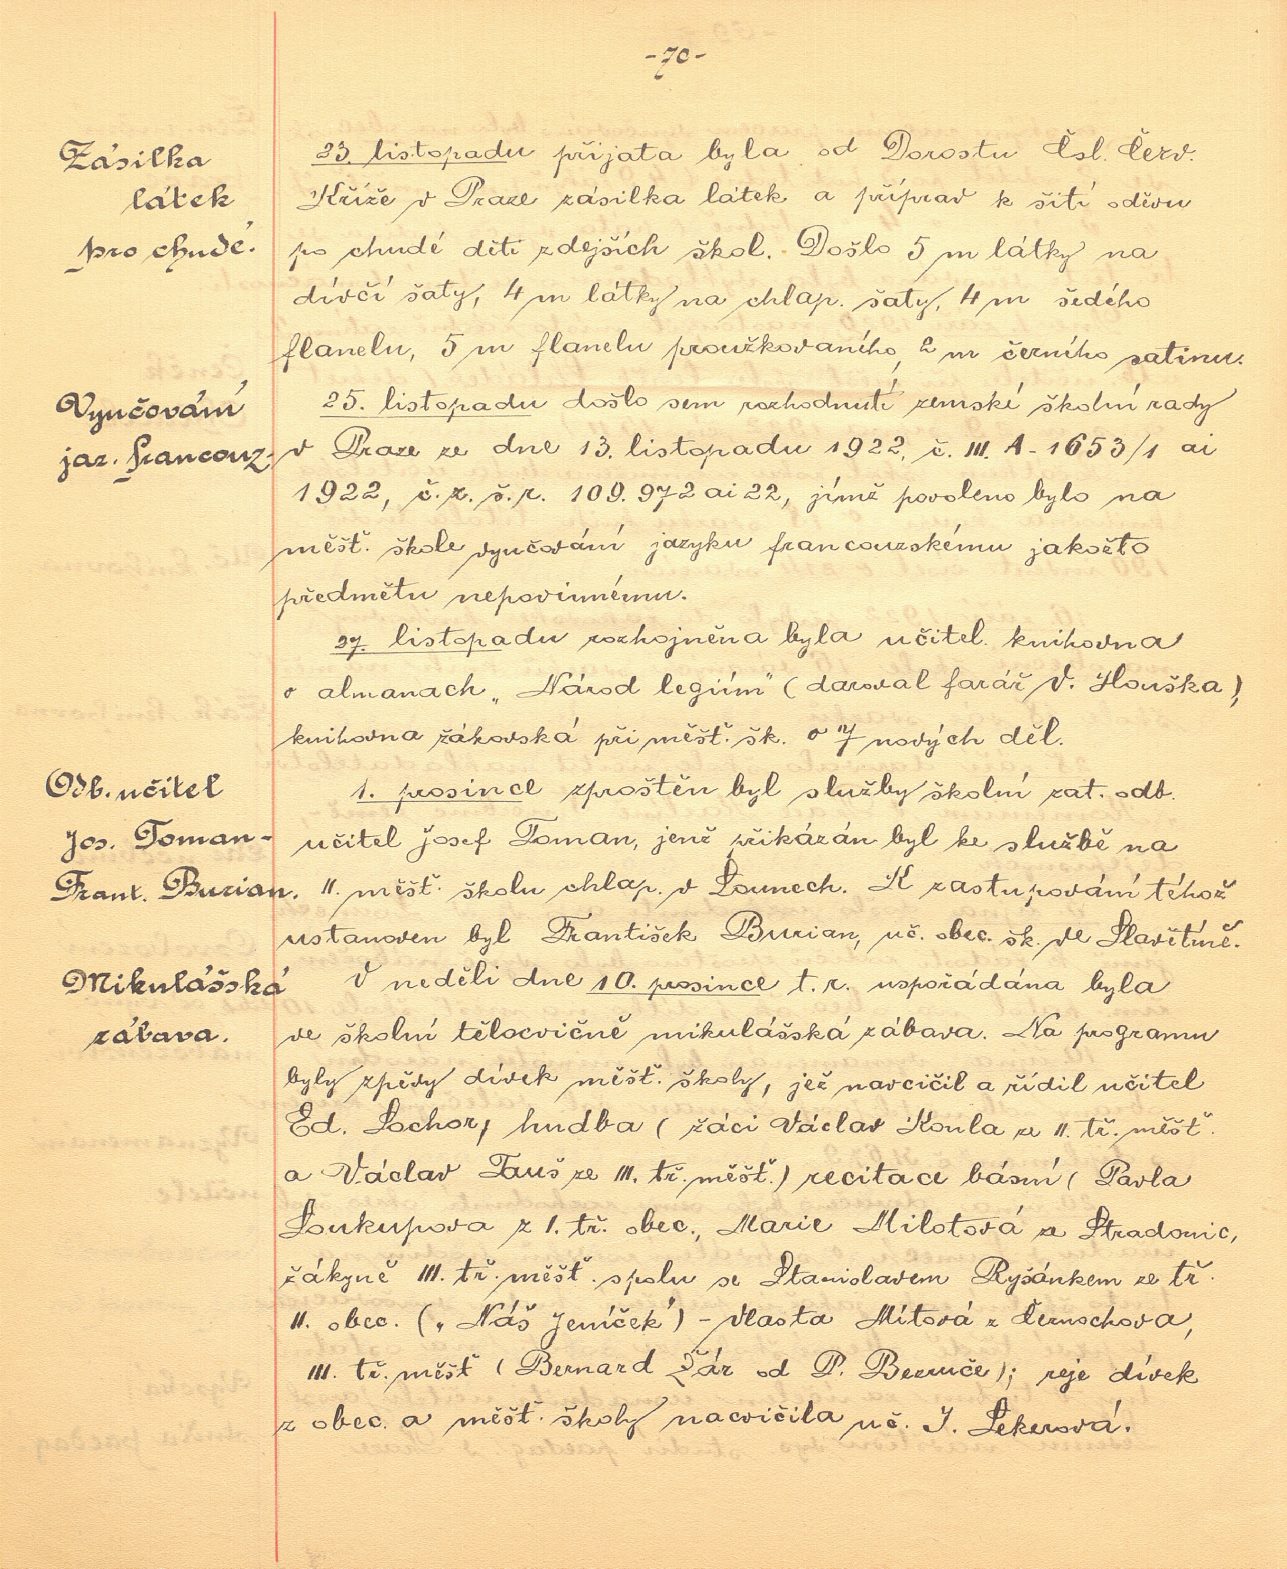 -70-
Zásilka
látek
pro chudé.
23. listopadu přijata byla od Dorostu Čsl. Červ.
Kříže v Praze zásilka látek a příprav k šití oděvu
po chudé děti zdejších škol. Došlo 5 m látky na
dívčí šaty, 4 m látky na chlap. šaty, 4 m šedého
flanelu, 5 m flanelu proužkovaného, 2 m černého satinu.
Vyučování
jaz. francouz.
25. listopadu došlo sem rozhodnutí zemské školní rady
v Praze ze dne 13. listopadu 1922, č. III. A - 1653/1 ai
1922, č. z. š. r. 109.972 ai 22, jímž povoleno bylo na
měšť. škole vyučování jazyku francouzskému jakožto
předmětu nepovinnému.
27. listopadu rozhojněna byla učitel. knihovna
o almanach „Národ legiím" (daroval farář V. Houška),
knihovna žákovská při měšť. šk. o 7 nových děl.
Odb. učitel
Jos. Toman -
Frant. Burian.
1. prosince zproštěn byl služby školní zat. odb.
učitel Josef Toman, jenž přikázán byl ke službě na
II. měšť. školu chlap. v Lounech. K zastupování téhož
ustanoven byl František Burian, uč. obec. šk. ve Slavětíně.
Mikulášská
zábava.
V neděli dne 10. prosince t. r. uspořádána byla
ve školní tělocvičně mikulášská zábava. Na programu
byly zpěvy dívek měšť. školy, jež navcičil a řídil učitel
Ed. Lochor, hudba (žáci Václav Koula ze II. tř. měšť.
a Václav Tauš ze III. tř. měšť.) recitace básní (Pavla
Soukupova z I. tř. obec., Marie Milotová ze Stradonic,
žákyně III. tř. měšť. spolu se Stanislavem Ryšánkem ze tř.
II. obec. („Náš Jeníček") - Vlasta Mítová z Černochova,
III. tř. měšť (Bernard Žár od P. Bezruče); reje dívek
z obec. a měšť. školy nacvičila uč. J. Sekerová.